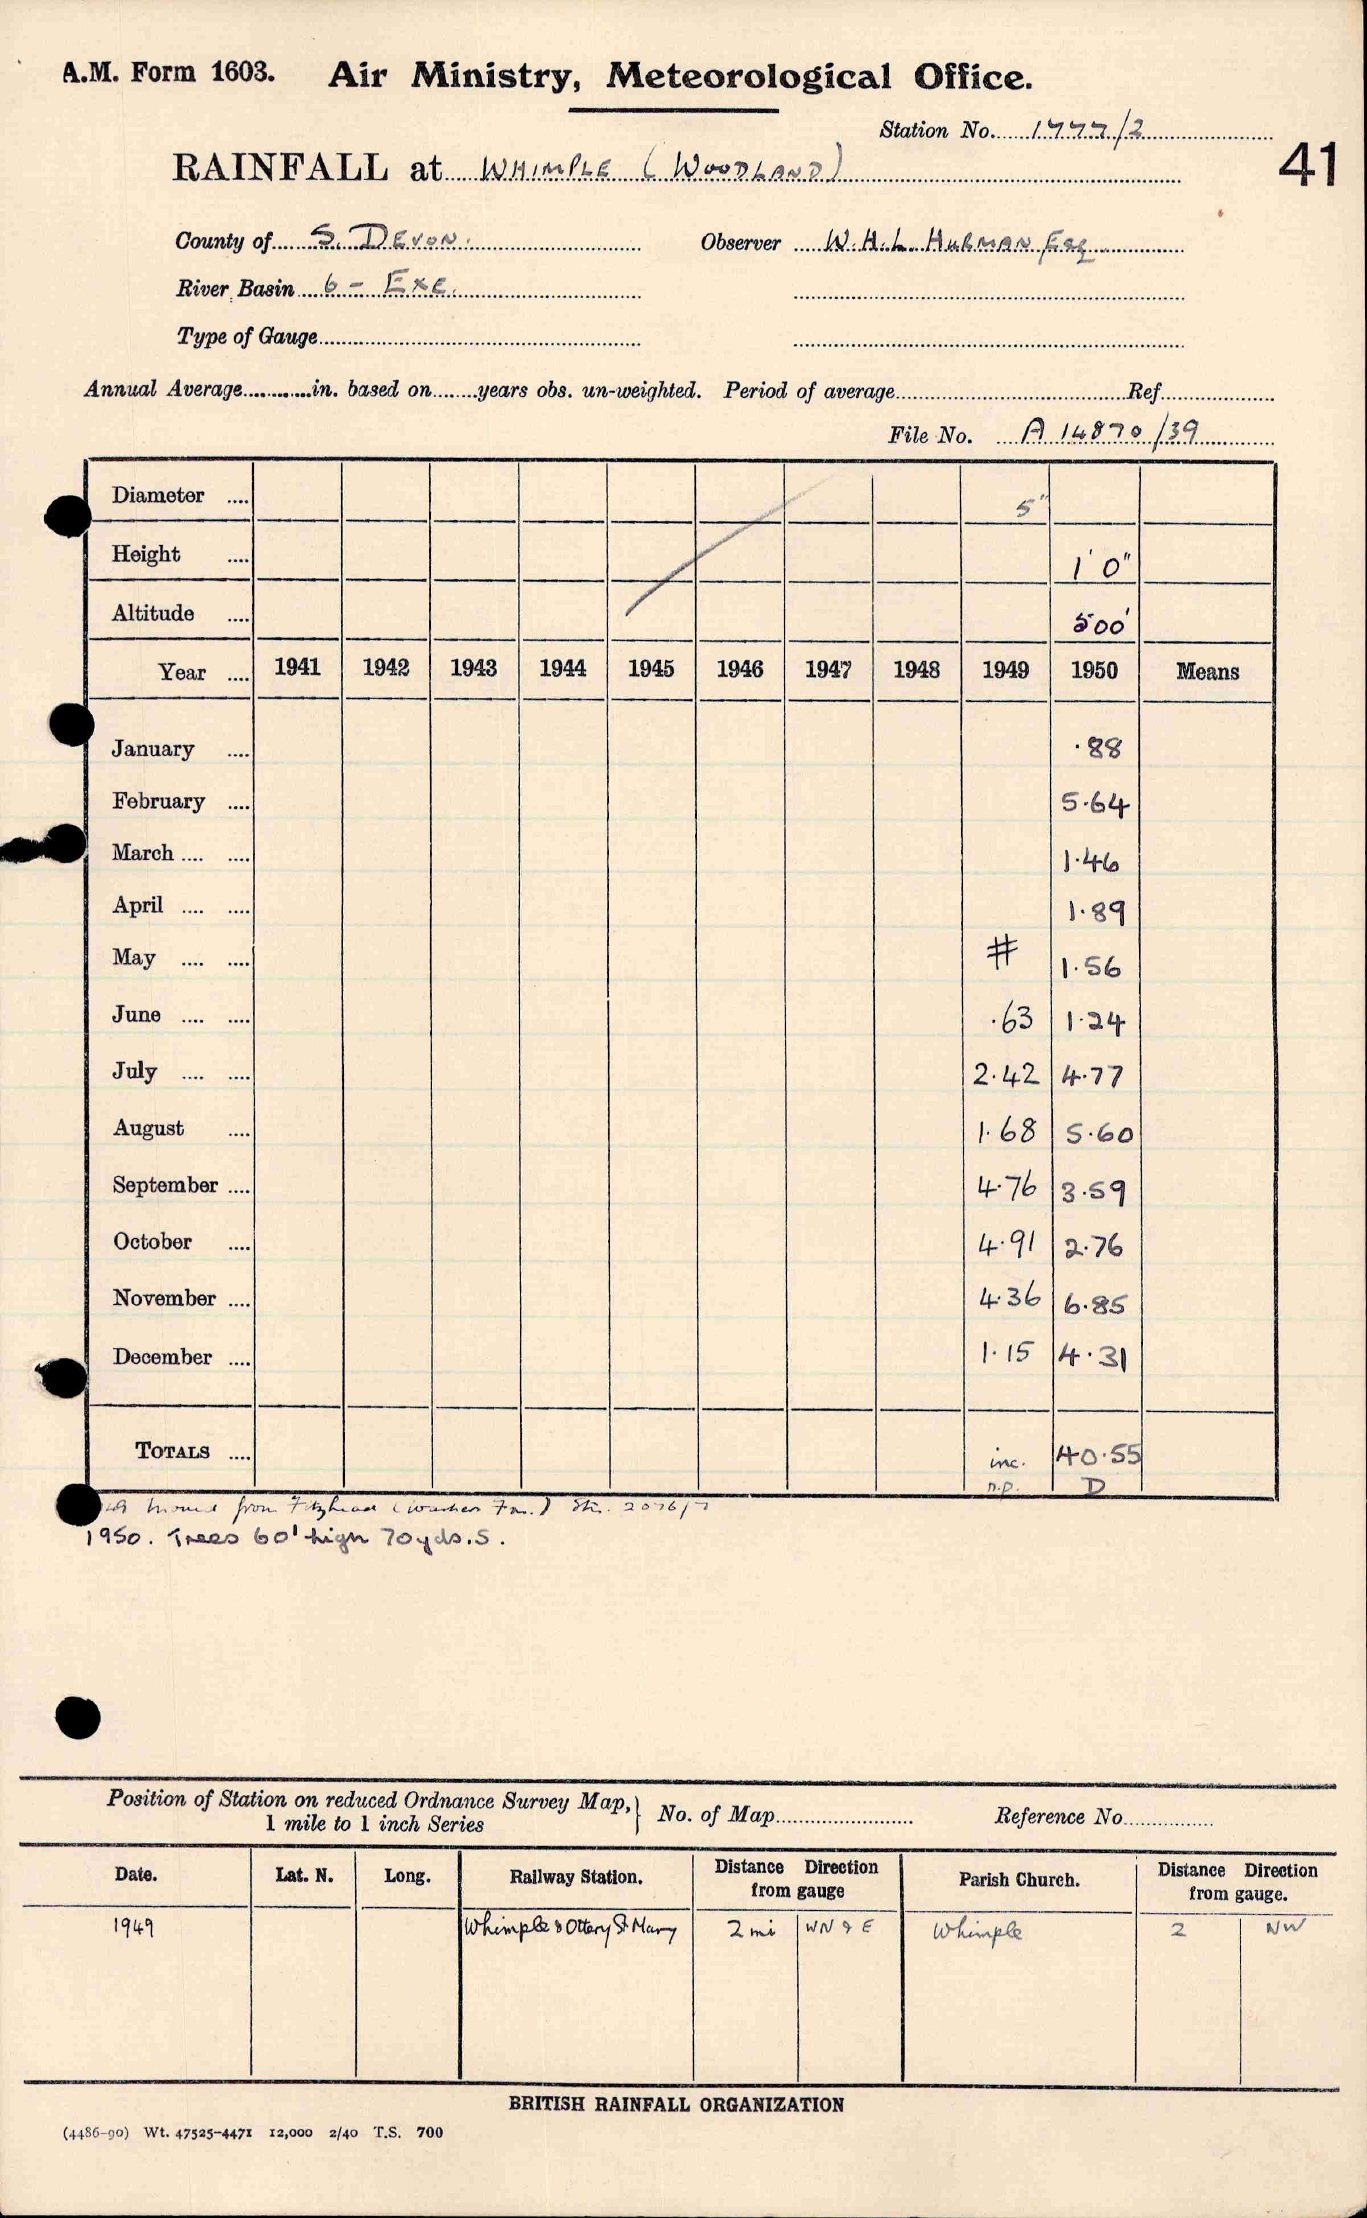 A.M. Form 1603. Air Ministry, Meteorological Office.
Station No. 1777/2
41
RAINFALL at WHIMPLE (WOODLAND)
County of S. DEVON. Observer W.H.L. HURMAN Esq
River Basin 6 - EXE.
Type of Gauge
Annual Average in. based on years obs. un-weighted. Period of average Ref
File No. A 14870/39
Diameter 5"
Height 1' 0"
Altitude 500'
Year 1941 1942 1943 1944 1945 1946 1947 1948 1949 1950 Means
January .88
February 5.64
March 1.46
April 1.89
May # 1.56
June .63 1.24
July 2.42 4.77
August 1.68 5.60
September 4.76 3.59
October 4.91 2.76
November 4.36 6.85
December 1.15 4.31
TOTALS inc. 40.55
n.p. D
moved from Fitzhead (Washer Fm.) Stn. 2076/7
1950. Trees 60' high 70yds. S.
Position of Station on reduced Ordnance Survey Map, 1 mile to 1 inch Series } No. of Map Reference No.
Date. Lat. N. Long. Railway Station. Distance Direction from gauge Parish Church. Distance Direction from gauge.
1949 Whimple & Ottery St Mary 2 mi WN & E Whimple 2 NW
BRITISH RAINFALL ORGANIZATION
(4486-90) Wt. 47525-4471 12,000 2/40 T.S. 700